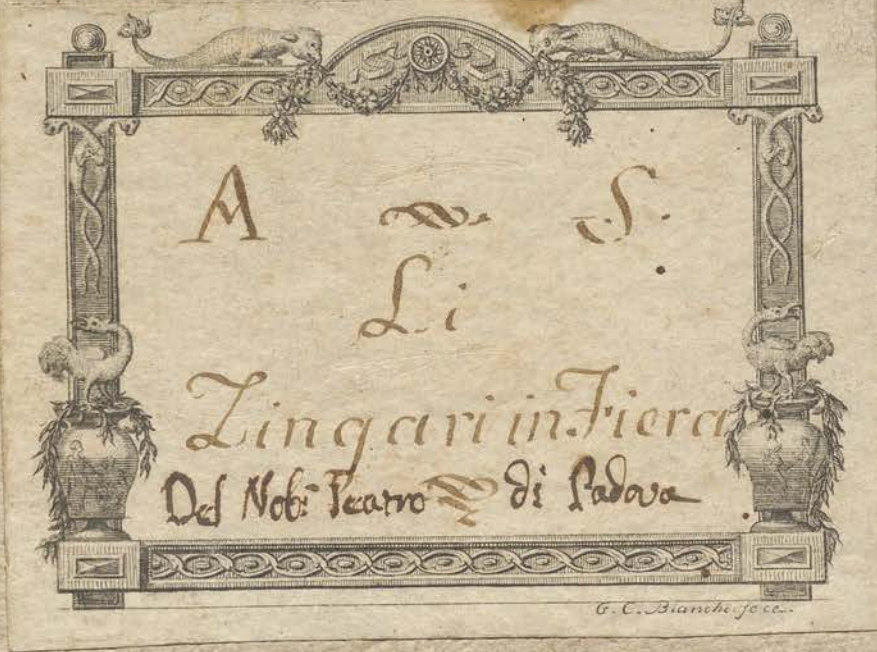 A S.
Li
Zingari in Fiera
Del Nobe Teatro di Padova
G. C. Bianchi fece.